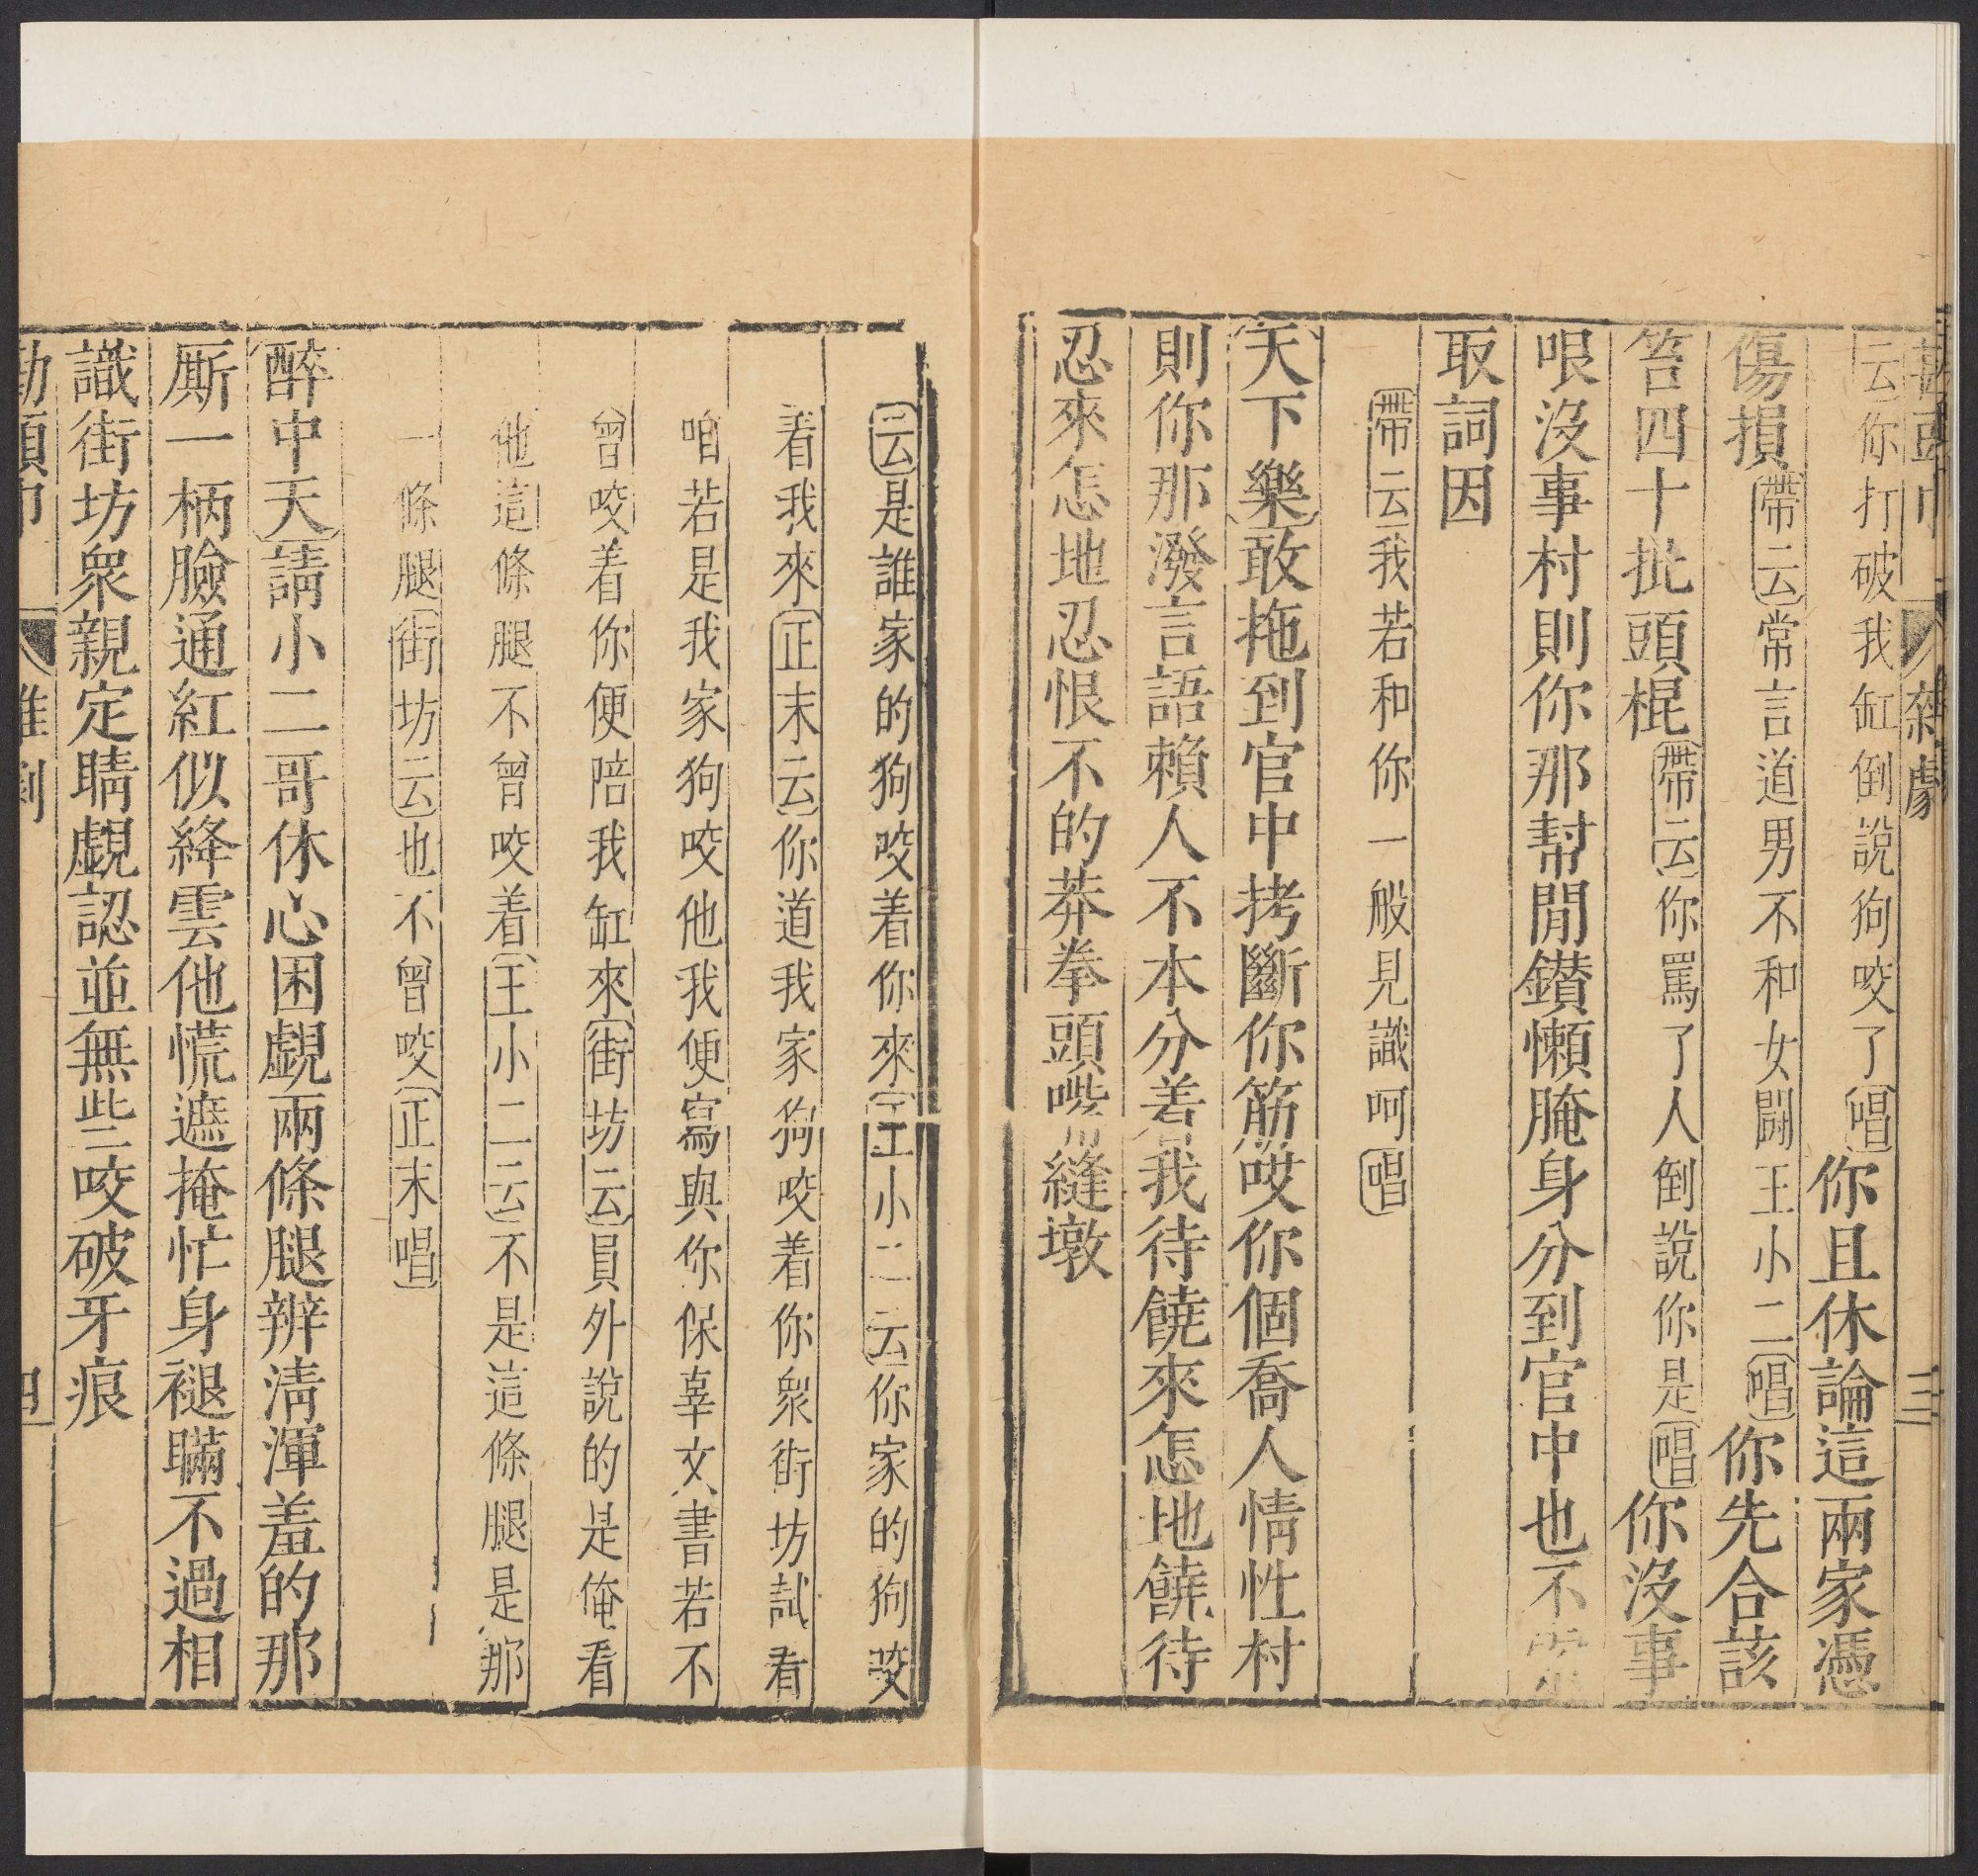 雜劇 三
云你打破我缸倒說狗咬了唱你且休論這兩家憑
傷損帶云常言道男不和女鬪王小二唱你先合該
笞四十批頭棍帶云你罵了人倒說你是唱你沒事
哏沒事村則你那幇閒鑚懶腌身分到官中也不
取詞因
帶云我若和你一般見識呵唱
天下樂敢拖到官中拷斷你筋哎你個喬人情性村
則你那潑言語賴人不本分善我待饒來怎地饒待
忍來怎地忍恨不的莽拳頭嘴縫墩
云是誰家的狗咬着你來王小二云你家的狗咬
着我來正末云你道我家狗咬着你衆街坊試看
咱若是我家狗咬他我便寫與你保辜文書若不
曾咬着你便陪我缸來街坊云員外說的是俺看
他這條腿不曾咬着王小二云不是這條腿是那
一條腿街坊云也不曾咬正末唱
醉中天請小二哥休心困覷兩條腿辨淸渾羞的那
厮一柄臉通紅似絳雲他慌遮掩忙身褪瞞不過相
識街坊衆親定睛覷認並無些咬破牙痕